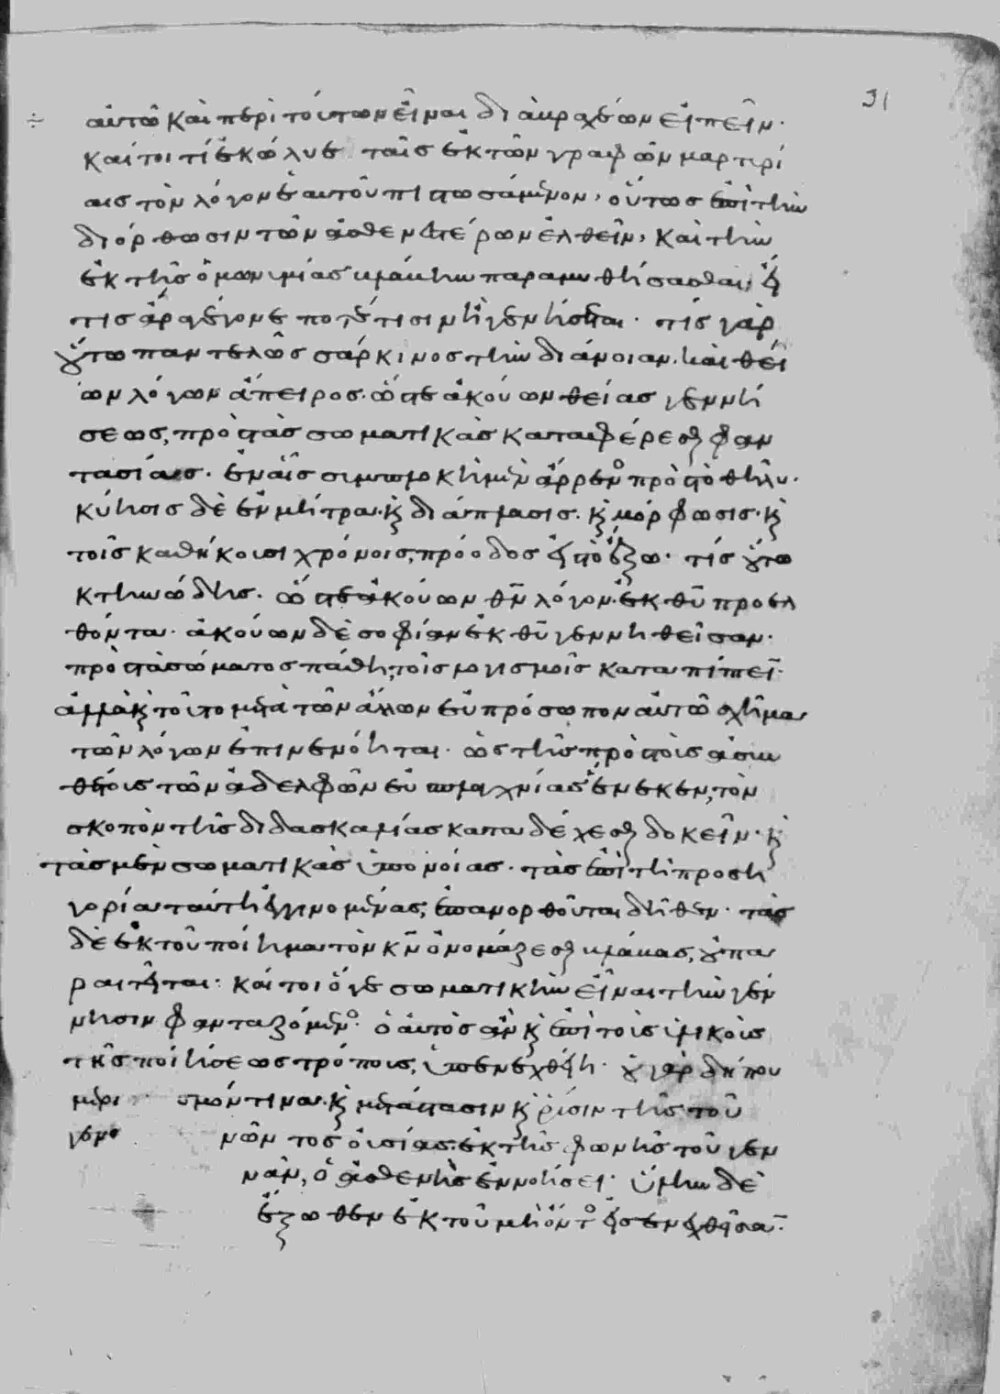 31
αὐτῶ καὶ περὶ τούτων εἶναι δι ἀκραχθῶν εἰπεῖν·
καίτοι τί ἐκώλυε ταῖς ἐκ τῶν γραφῶν μαρτυρί
αις τὸν λόγον ἑαυτοῦ πιστωσάμενον, οὕτως ἐπὶ τὴν
διόρθωσιν τῶν ἀσθενεστέρων ἐλθεῖν, καὶ τὴν
ἐκ τῆς ὁμωνυμίας βλάβην παραμυθήσασθαι,
τις ἄρα γέγονέ ποτέ τισι μὴ γενήσεται· τίς γὰρ
οὕτω παντελῶς σάρκινος τὴν διάνοιαν. καὶ θεί
ων λόγων ἄπειρος. ὥστε ἀκούων θείας γεννή
σεως, πρὸς τὰς σωματικὰς καταφέρεσθαι φαν
τασίας. ἐν αἷς συμπλοκὴ μὲν ἄρρενος πρὸς τὸ θῆλυ.
κύησις δὲ ἐν μήτρα. καὶ διάπλασις. καὶ μόρφωσις. καὶ
τοῖς καθήκουσι χρόνοις, πρόοδος εἰς τὸ ἔξω. τίς οὕτω
κτηνώδης. ὥστε ἀκούων θν λόγον ἐκ θυ προελ
θόντα. ἀκούων δὲ σοφίαν ἐκ θυ γεννηθεῖσαν.
πρὸς τὰ σώματος πάθη, τοῖς λογισμοῖς καταπίπτει·
ἀλλὰ καὶ τοῦτο μετὰ τῶν ἄλλων εὐπρόσωπον αὐτῶ σχῆμα
τῶν λόγων ἐπινενόηται. ὡς τῆς πρὸς τοὺς ἀσυν
θέτοις τῶν ἀδελφῶν εὐσπλαχνίας ἕνεκεν, τὸν
σκοπὸν τῆς διδασκαλίας καταδέχεσθαι δοκεῖν. καὶ
τὰς μὲν σωματικὰς ὑπονοίας. τὰς ἐπὶ τῆ προση
γορία ταύτη γινομένας, ἐπανορθοῦται δῆθεν. τὰς
δὲ ἐκ τοῦ ποίημα τὸν κν ὀνομάζεσθαι βλάβας, οὐ πα
ραιτεῖται· καίτοι ὅ γε σωματικὴν εἶναι τὴν γέν
νησιν φανταζόμενος. ὁ αὐτὸς ἂν καὶ ἐπὶ τοὺς ὑλικοὺς
τῆς ποιήσεως τρόπους, ὑπενεχθείη. οὐ γὰρ δήπου
μερισμόν τινα. καὶ μετάστασιν καὶ ῥύσιν τῆς τοῦ
γεννῶντος οὐσίας. ἐκ τῆς φωνῆς τοῦ γεν
νᾶν, ὁ ἀσθενὴς ἐννοήσει· ὕλην δὲ
ἔξωθεν ἐκ τοῦ μὴ ὄντος εἰσενεχθῆσα·